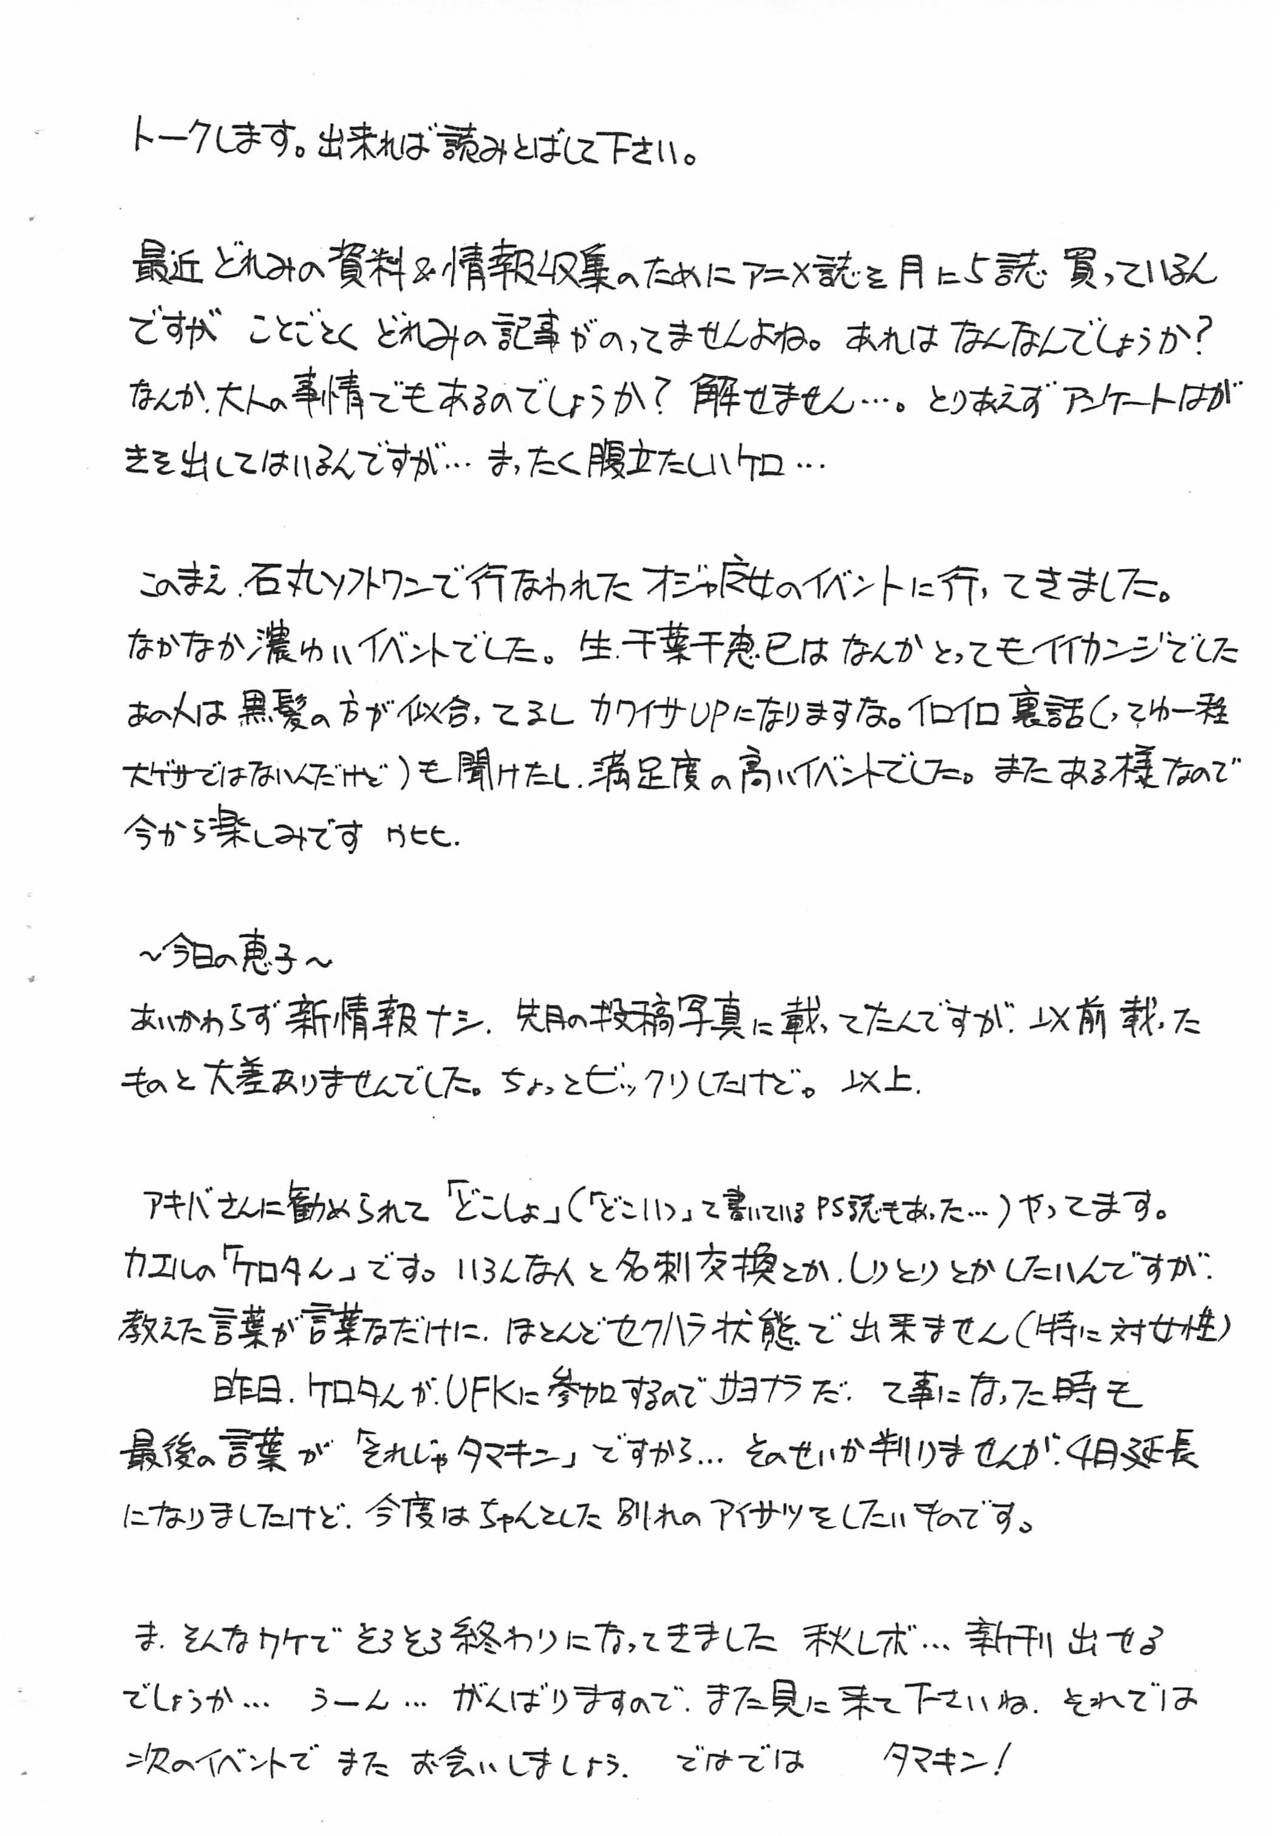 トークします。出来れば読みとばして下さい。
最近どれみの資料&情報収集のためにアニメ誌を月に5誌買っているん
ですがことごとくどれみの記事がのってませんよね。あれはなんなんでしょうか?
なんか、大人の事情でもあるのでしょうか?解せません…。とりあえずアンケートはが
きを出してはいるんですが…まったく腹立たしいケロ…
このまえ、石丸ソフトワンで行なわれたオジャ魔女のイベントに行ってきました。
なかなか濃ゆいイベントでした。生、千葉千恵巳はなんかとってもイイカンジでした
あの人は黒髪の方が似合ってるしカワイサUPになりますな。イロイロ裏話(ってゆー程
大ゲサではないんだけど)も聞けたし、満足度の高いイベントでした。またある様なので
今から楽しみですウヒヒ.
~今日の恵子~
あいかわらず新情報ナシ、先月の投稿写真に載ってたんですが、以前載った
ものと大差ありませんでした。ちょっとビックリしたけど。以上.
アキバさんに勧められて「どこしょ」(「どこいつ」て書いているPS誌もあった…)やってます。
カエルの「ケロタん」です。いろんな人と名刺交換とか、しりとりとかしたいんですが、
教えた言葉が言葉なだけに、ほとんどセクハラ状態で出来ません(特に対女性)
昨日、ケロタんが、UFKに参加するのでサヨナラだ、て事になった時も
最後の言葉が「それじゃタマキン」ですから…そのせいか判りませんが、4日延長
になりましたけど、今度はちゃんとした別れのアイサツをしたいものです。
ま、そんなワケでそろそろ終わりになってきました 秋レボ…新刊出せる
でしょうか… うーん…がんばりますので、また見に来て下さいね、それでは
次のイベントでまたお会いしましょう、ではでは タマキン!